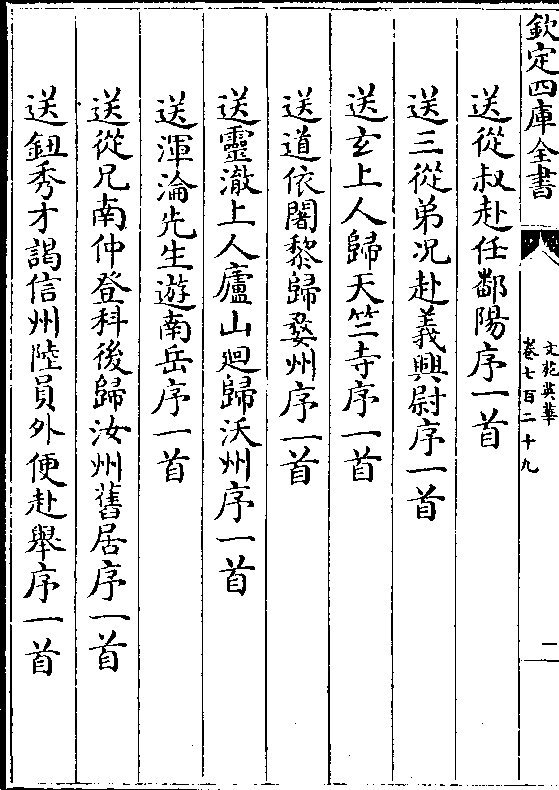 欽定四庫全書
文苑英華
卷七百二十九
二
送從叔赴任鄱陽序一首
送三從弟况赴義興尉序一首
送玄上人歸天竺寺序一首
送道依闍黎歸婺州序一首
送靈澈上人廬山廻歸沃州序一首
送渾淪先生遊南岳序一首
送從兄南仲登科後歸汝州舊居序一首
送鈕秀才謁信州陸員外便赴舉序一首